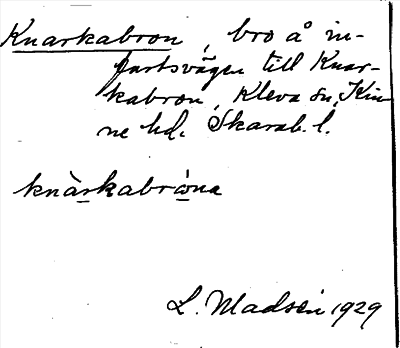 Knarkabron, bro å in-
fartsvägen till Knar-
kabron, Kleva sn, Kin
ne hd. Skarab. l.
knàrkabró̲na
L. Madsén 1929